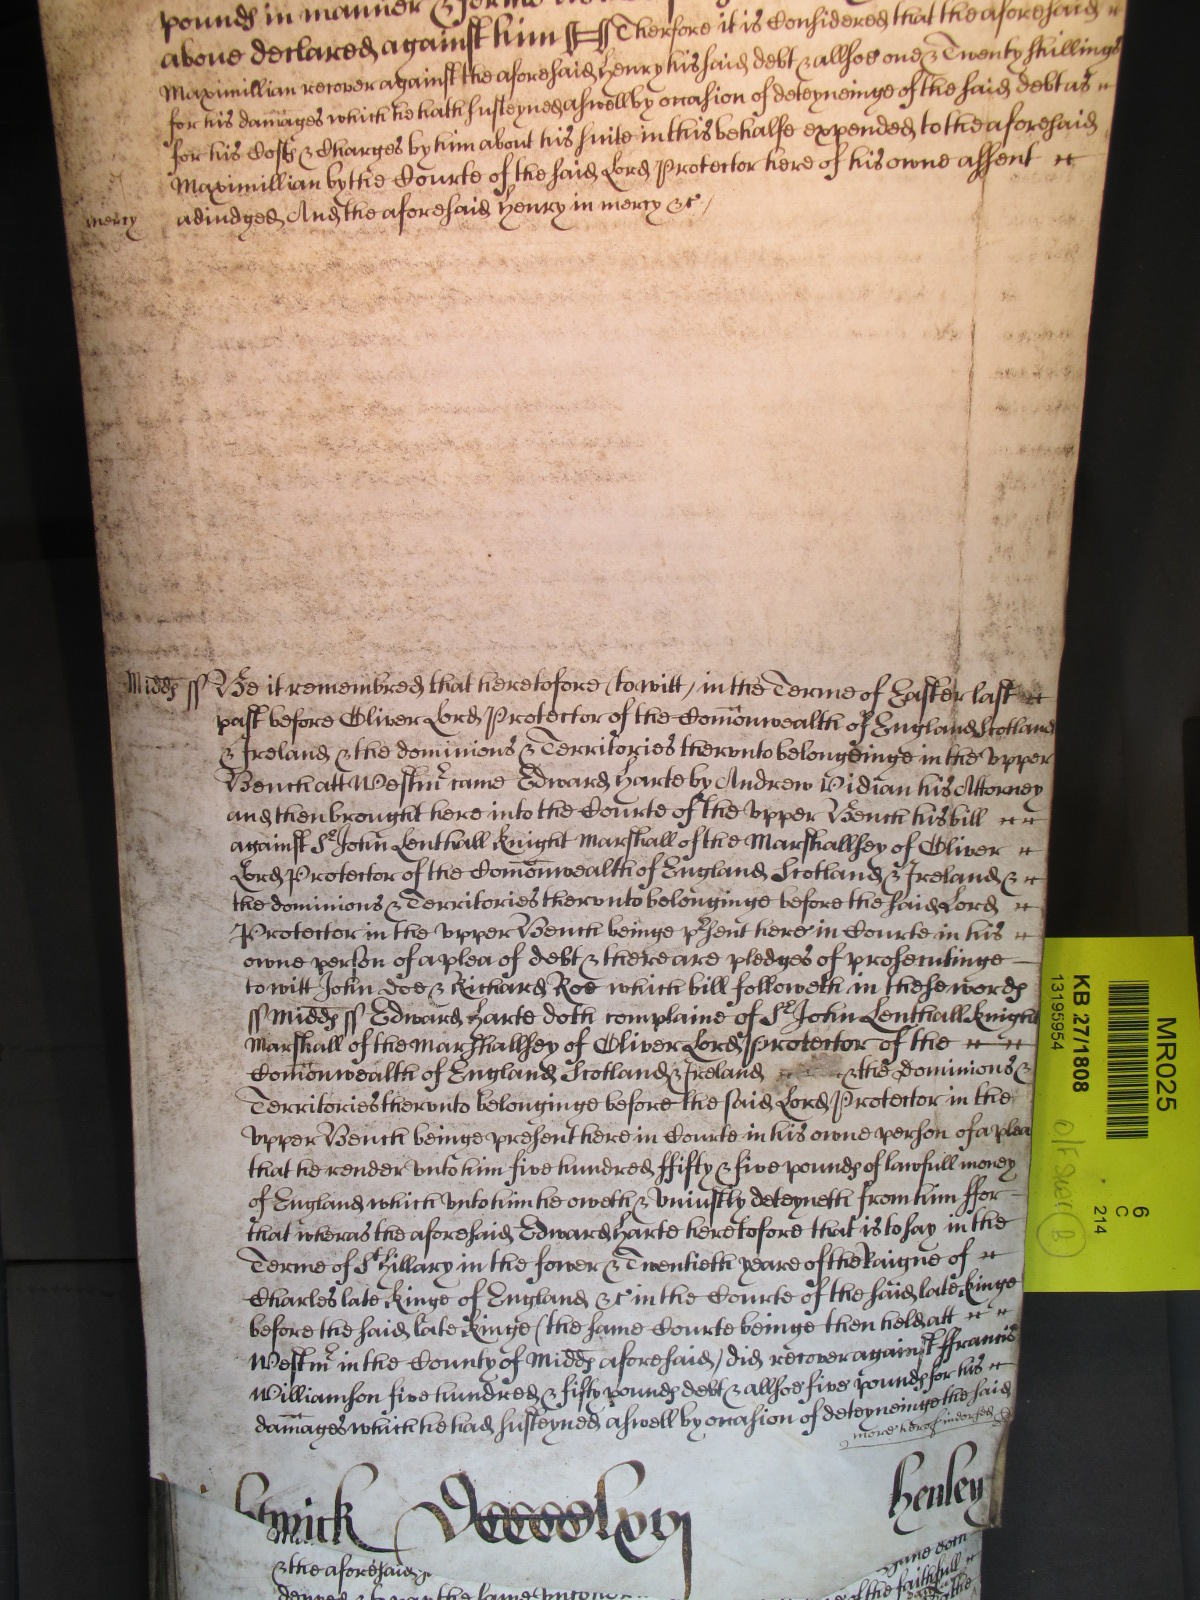 pounds in manner & forme
above declared against him Therfore it is Considered that the aforesaid
Maximillian recover against the aforesaid Henry his said debt & allsoe one & Twenty shillings
for his damages which he hath susteyned aswell by occasion of deteyneinge of the said debt as
for his Costs & Charges by him about his suite in this behalfe expended to the aforesaid
Maximillian by the Courte of the said Lord Protector here of his owne assent
mercy adiudged And the aforesaid Henry in mercy &c /
Midds ss Be it remembred that heretofore (to witt) in the Terme of Easter last
past before Oliver Lord Protector of the Comonwealth of England Scotland
& Ireland & the dominions & Territories thervnto belongeinge in the vpper
Bench att Westmr came Edward Harte by Andrew Vidian his Attorney
and then brought here into the Courte of the vpper Bench his bill
against Sr John Lenthall knight Marshall of the Marshallsey of Oliver
Lord Protector of the Comonwealth of England Scotland & Ireland &
the dominions & Territories thervnto belonginge before the said Lord
Protector in the vpper Bench beinge prsent here in Courte in his
owne person of a plea of debt & there are pledges of prosecutinge
to witt John Doe & Richard Roe which bill followeth in these words
ss Midds ss Edward Harte doth complaine of Sr John Lenthall knight
Marshall of the Marshallsey of Oliver Lord Protector of the
Comonwealth of England Scotland & Ireland & the Dominions &
Territories thervnto belonginge before the said Lord Protector in the
vpper Bench beinge present here in Courte in his owne person of a plea
that he render vnto him five hundred ffifty & five pounds of lawfull money
of England which vnto him he oweth & vniustly deteyneth from him ffor
that wheras the aforesaid Edward Harte heretofore that is to say in the
Terme of St Hillary in the fower & Twentieth yeare of the Raigne of
Charles late Kinge of England &c in the Courte of the said late Kinge
before the said late Kinge (the same Courte beinge then held att
Westmr in the County of Midds aforesaid) did recover against ffrancis
Williamson five hundred & fifty pounds debt & allsoe five pounds for his
damages which he had susteyned aswell by occasion of deteyneinge the said
more herof indorsed
wick Henley
& the aforesaid
of the faithfull
MR025
KB 27/1808
13195954
6
C
214
B